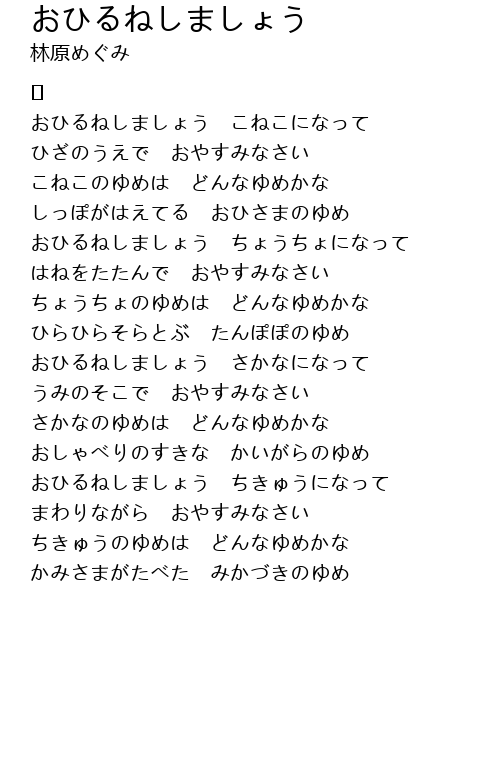 おひるねしましょう
林原めぐみ
おひるねしましょう　こねこになって
ひざのうえで　おやすみなさい
こねこのゆめは　どんなゆめかな
しっぽがはえてる　おひさまのゆめ
おひるねしましょう　ちょうちょになって
はねをたたんで　おやすみなさい
ちょうちょのゆめは　どんなゆめかな
ひらひらそらとぶ　たんぽぽのゆめ
おひるねしましょう　さかなになって
うみのそこで　おやすみなさい
さかなのゆめは　どんなゆめかな
おしゃべりのすきな　かいがらのゆめ
おひるねしましょう　ちきゅうになって
まわりながら　おやすみなさい
ちきゅうのゆめは　どんなゆめかな
かみさまがたべた　みかづきのゆめ